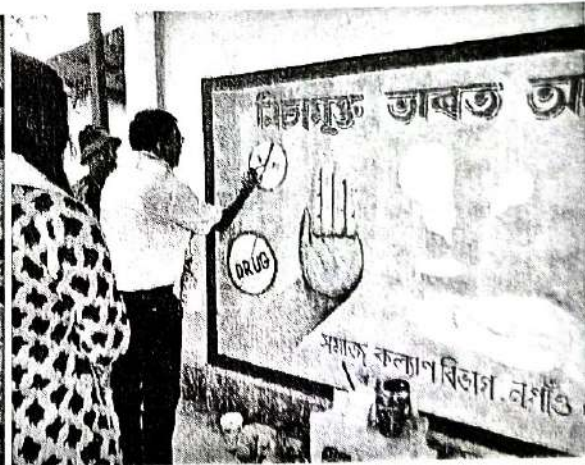 নিচামুক্ত ভাৰত অ
DRUG
সমাজ কল্যাণ বিভাগ, নগাঁও